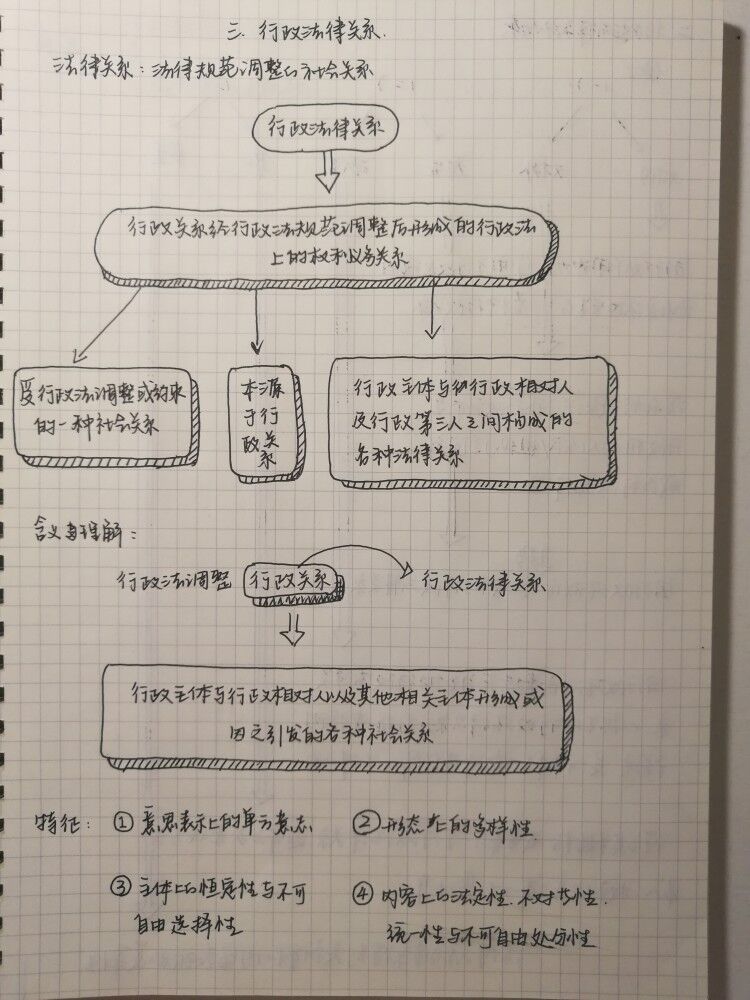 三. 行政法律关系.
法律关系：法律规范调整的社会关系
行政法律关系
行政关系经行政法规范调整后形成的行政法
上的权利义务关系
受行政法调整或约束
的一种社会关系
本源
于行
政关
系
行政主体与行政相对人
及行政第三人之间构成的
各种法律关系
含义与理解：
行政法调整 行政关系 行政法律关系
行政主体与行政相对人以及其他相关主体形成或
因之引发的各种社会关系
特征： ① 意思表示上的单方意志 ② 形态上的多样性
③ 主体上的恒定性与不可
自由选择性
④ 内容上的法定性、不对等性、
统一性与不可自由处分性